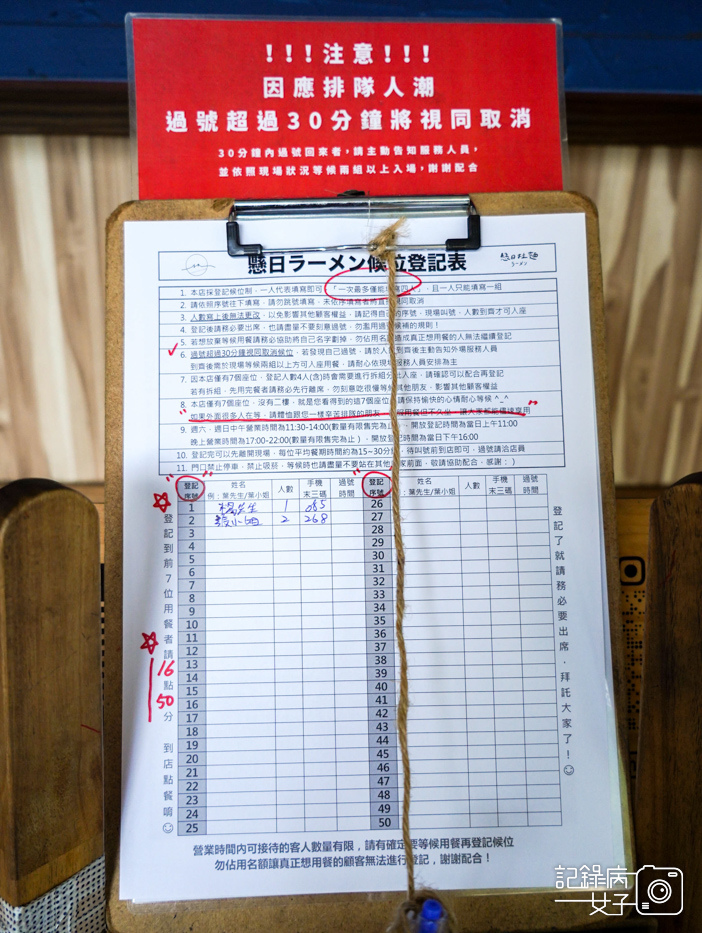 !!!注意!!!
因應排隊人潮
過號超過30分鐘將視同取消
30分鐘內過號回來者,請主動告知服務人員,
並依照現場狀況等候兩組以上入場,謝謝配合
懸日ラーメン候位登記表
ラーメン
1. 本店採登記候位制,一人代表填寫即可,「一次最多僅能填寫四人」,且一人只能填寫一組
2. 請依照序號往下填寫,請勿跳號填寫,未依序填寫者將直接視同取消
3. 人數寫上後無法更改,以免影響其他顧客權益,請記得自己的序號,現場叫號,人數到齊才可入座
4. 登記後請務必要出席,也請盡量不要刻意過號,勿濫用過號候補的規則!
5. 若想放棄等候用餐請務必協助將自己名字劃掉,勿佔用名額造成真正想用餐的人無法繼續登記
6. 過號超過30分鐘視同取消候位,若發現自己過號,請於人數到齊後主動告知外場服務人員
到齊後需於現場等候兩組以上方可入座用餐、請耐心依現場服務人員安排為主
7. 因本店僅有7個座位,登記人數4人(含)時會需要進行拆組分批入座,請確認可以配合再登記
若有拆組,先用完餐者請務必先行離席,勿刻意吃很慢等候其他朋友,影響其他顧客權益
8. 本店僅有7個座位,沒有二樓,就是您看到的這7個座位,請保持愉快的心情耐心等候 ^_^
如果外面很多人在等,請體恤跟您一樣辛苦排隊的朋友,
9. 週六、週日中午營業時間為11:30-14:00(數量有限售完為止),開放登記時間為當日上午11:00
晚上營業時間為17:00-22:00(數量有限售完為止),開放登記時間為當日下午16:00
10. 登記完可以先離開現場,每位平均餐期時間約為15~30分鐘,待叫號前到店即可,過號請洽店員
11. 門口禁止停車、禁止吸菸,等候時也請盡量不要站在其他店家前面,敬請協助配合,感謝:)
登記序號 姓名 例:葉先生/葉小姐 人數 手機末三碼 過號時間 登記序號 姓名 例:葉先生/葉小姐 人數 手機末三碼 過號時間
1 楊先生 1 085 26
2 張小姐 2 268 27
3 28
4 29
5 30
6 31
7 32
8 33
9 34
10 35
11 36
12 37
13 38
14 39
15 40
16 41
17 42
18 43
19 44
20 45
21 46
22 47
23 48
24 49
25 50
登記到前7位用餐者請16點50分 到店點餐唷
登記了就請務必要出席,拜託大家了!
營業時間內可接待的客人數量有限,請有確定要等候用餐再登記候位
勿佔用名額讓真正想用餐的顧客無法進行登記,謝謝配合!
記錄病
女子